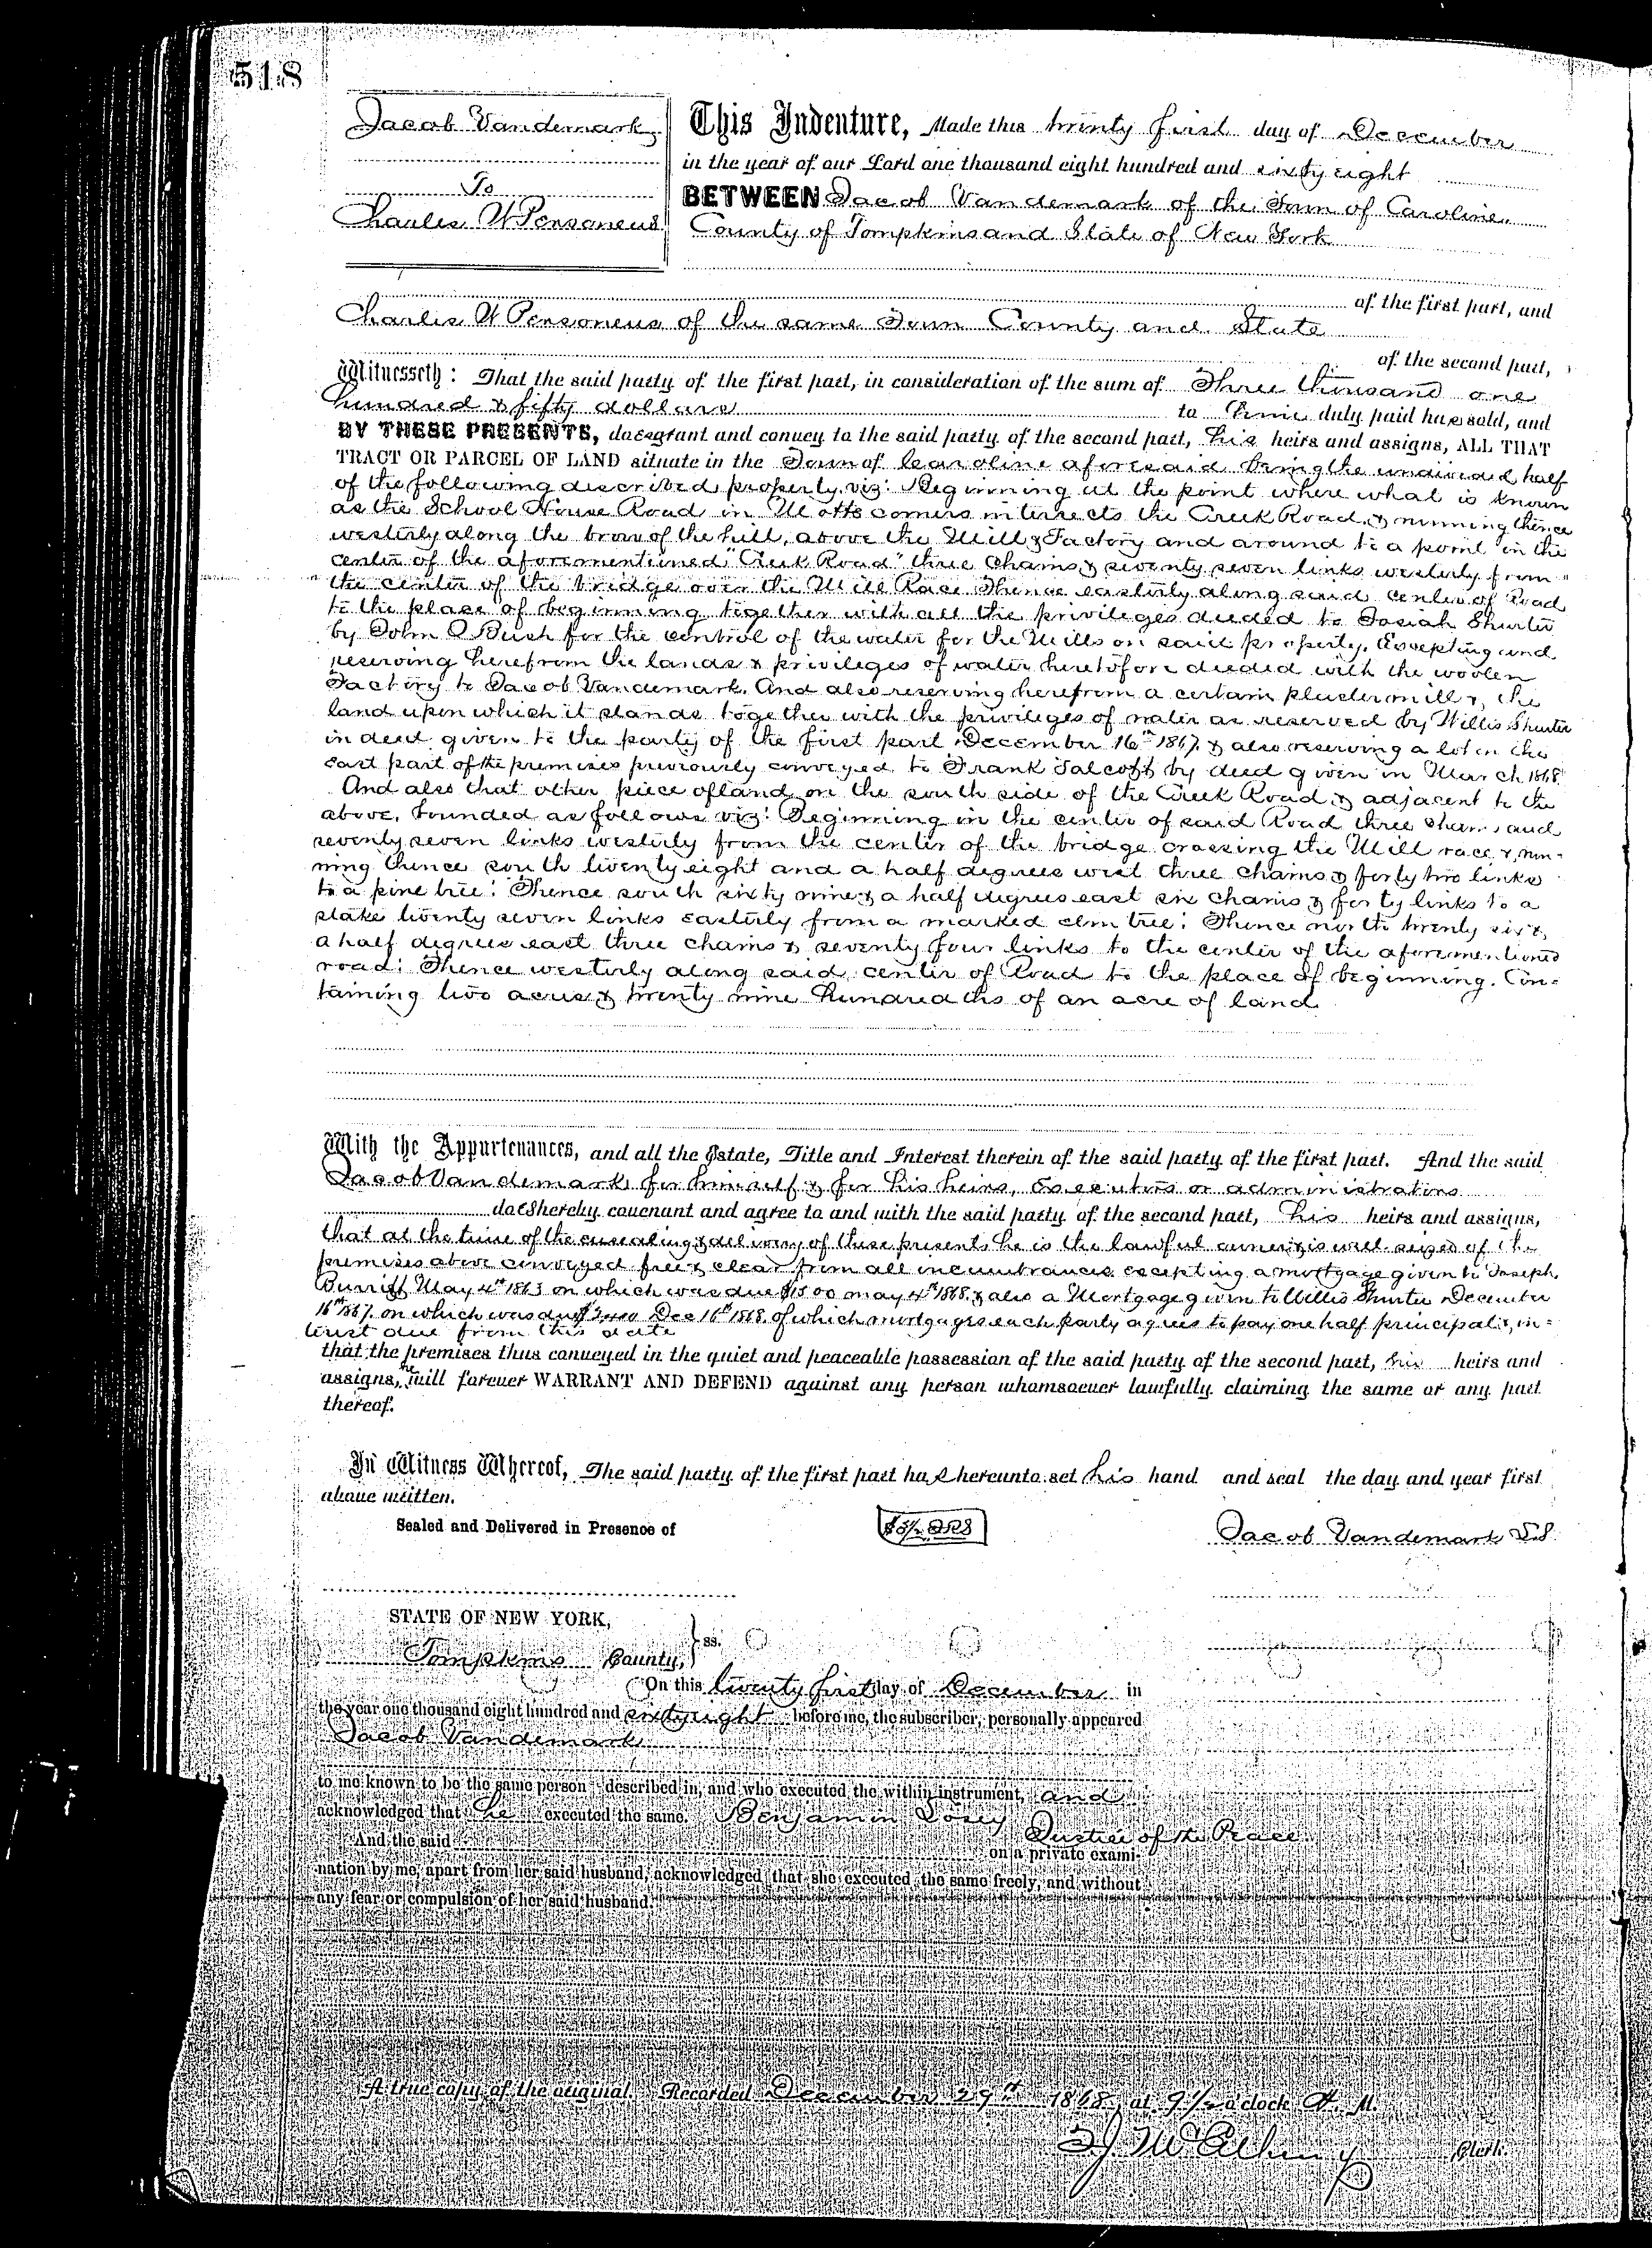 518
Jacob Vandemark
To
Charles W Personeus
This Indenture, Made this twenty first day of December
in the year of our Lord one thousand eight hundred and sixty eight
BETWEEN Jacob Vandemark of the Town of Caroline
County of Tompkins and State of New York
of the first part, and
Charles W Personeus of the same Town County and State
of the second part,
Witnesseth: That the said party of the first part, in consideration of the sum of Three thousand one
hundred & fifty dollars to him duly paid has sold, and
BY THESE PRESENTS, does grant and convey to the said party of the second part, his heirs and assigns, ALL THAT
TRACT OR PARCEL OF LAND situate in the Town of Caroline aforesaid being the undivided half
of the following described property viz: Beginning at the point where what is known
as the School House Road in Motts corners intersects the Creek Road & running thence
westerly along the brow of the hill, above the Mill & Factory and around to a point in the
center of the aforementioned "Creek Road" three chains & seventy seven links westerly from
the center of the bridge over the Mill Race Thence easterly along said center of Road
to the place of beginning together with all the privileges deeded to Josiah Shurter
by John Bush for the control of the water for the Mills on said property. Excepting and
reserving herefrom the lands & privileges of water heretofore deeded with the woolen
Factory to Jacob Vandemark. And also reserving herefrom a certain plaster mill & the
land upon which it stands together with the privileges of water as reserved by Willis Shurter
in deed given to the party of the first part December 16th 1867 & also reserving a lot on the
East part of the premises previously conveyed to Frank Talcott by deed given in March 1868
And also that other piece of land on the south side of the Creek Road & adjacent to the
above, bounded as follows viz: Beginning in the center of said Road three chains and
seventy seven links westerly from the center of the bridge crossing the Mill race & run-
ning thence south twenty eight and a half degrees west three chains & forty two links
to a pine tree: Thence south sixty nine & a half degrees east six chains & forty links to a
stake twenty seven links easterly from a marked elm tree: Thence north twenty six &
a half degrees east three chains & seventy four links to the center of the aforementioned
road: Thence westerly along said center of Road to the place of beginning. Con=
taining two acres & twenty nine hundredths of an acre of land
With the Appurtenances, and all the Estate, Title and Interest therein of the said party of the first part. And the said
Jacob Vandemark for himself & for his heirs, Executors or administrators
does hereby covenant and agree to and with the said party of the second part, his heirs and assigns,
that at the time of the ensealing & delivery of these presents he is the lawful owner & is well seized of the
premises above conveyed free & clear from all incumbrances excepting a mortgage given to Joseph
Burritt May 4th 1863 on which was due $1500 may 4th 1868 & also a Mortgage given to Willis Shurter December
16th 1867. on which was due Dec 16th 1868. of which mortgages each party agrees to pay one half principal & in=
terest due from this date
that the premises thus conveyed in the quiet and peaceable possession of the said party of the second part, his heirs and
assigns, he will forever WARRANT AND DEFEND against any person whomsoever lawfully claiming the same or any part
thereof.
In Witness Whereof, The said party of the first part has hereunto set his hand and seal the day and year first
above written.
Sealed and Delivered in Presence of
Jacob Vandemark L.S.
STATE OF NEW YORK,
Tompkins County, } ss.
On this twenty first day of December in
the year one thousand eight hundred and sixty eight before me, the subscriber, personally appeared
Jacob Vandemark
to me known to be the same person described in, and who executed the within instrument, and
acknowledged that he executed the same. Benjamin Losey
Justice of the Peace
And the said on a private exami-
nation by me, apart from her said husband, acknowledged that she executed the same freely, and without
any fear or compulsion of her said husband.
A true copy of the original. Recorded December 29th 1868, at 9 1/2 o'clock A. M.
Clerk.